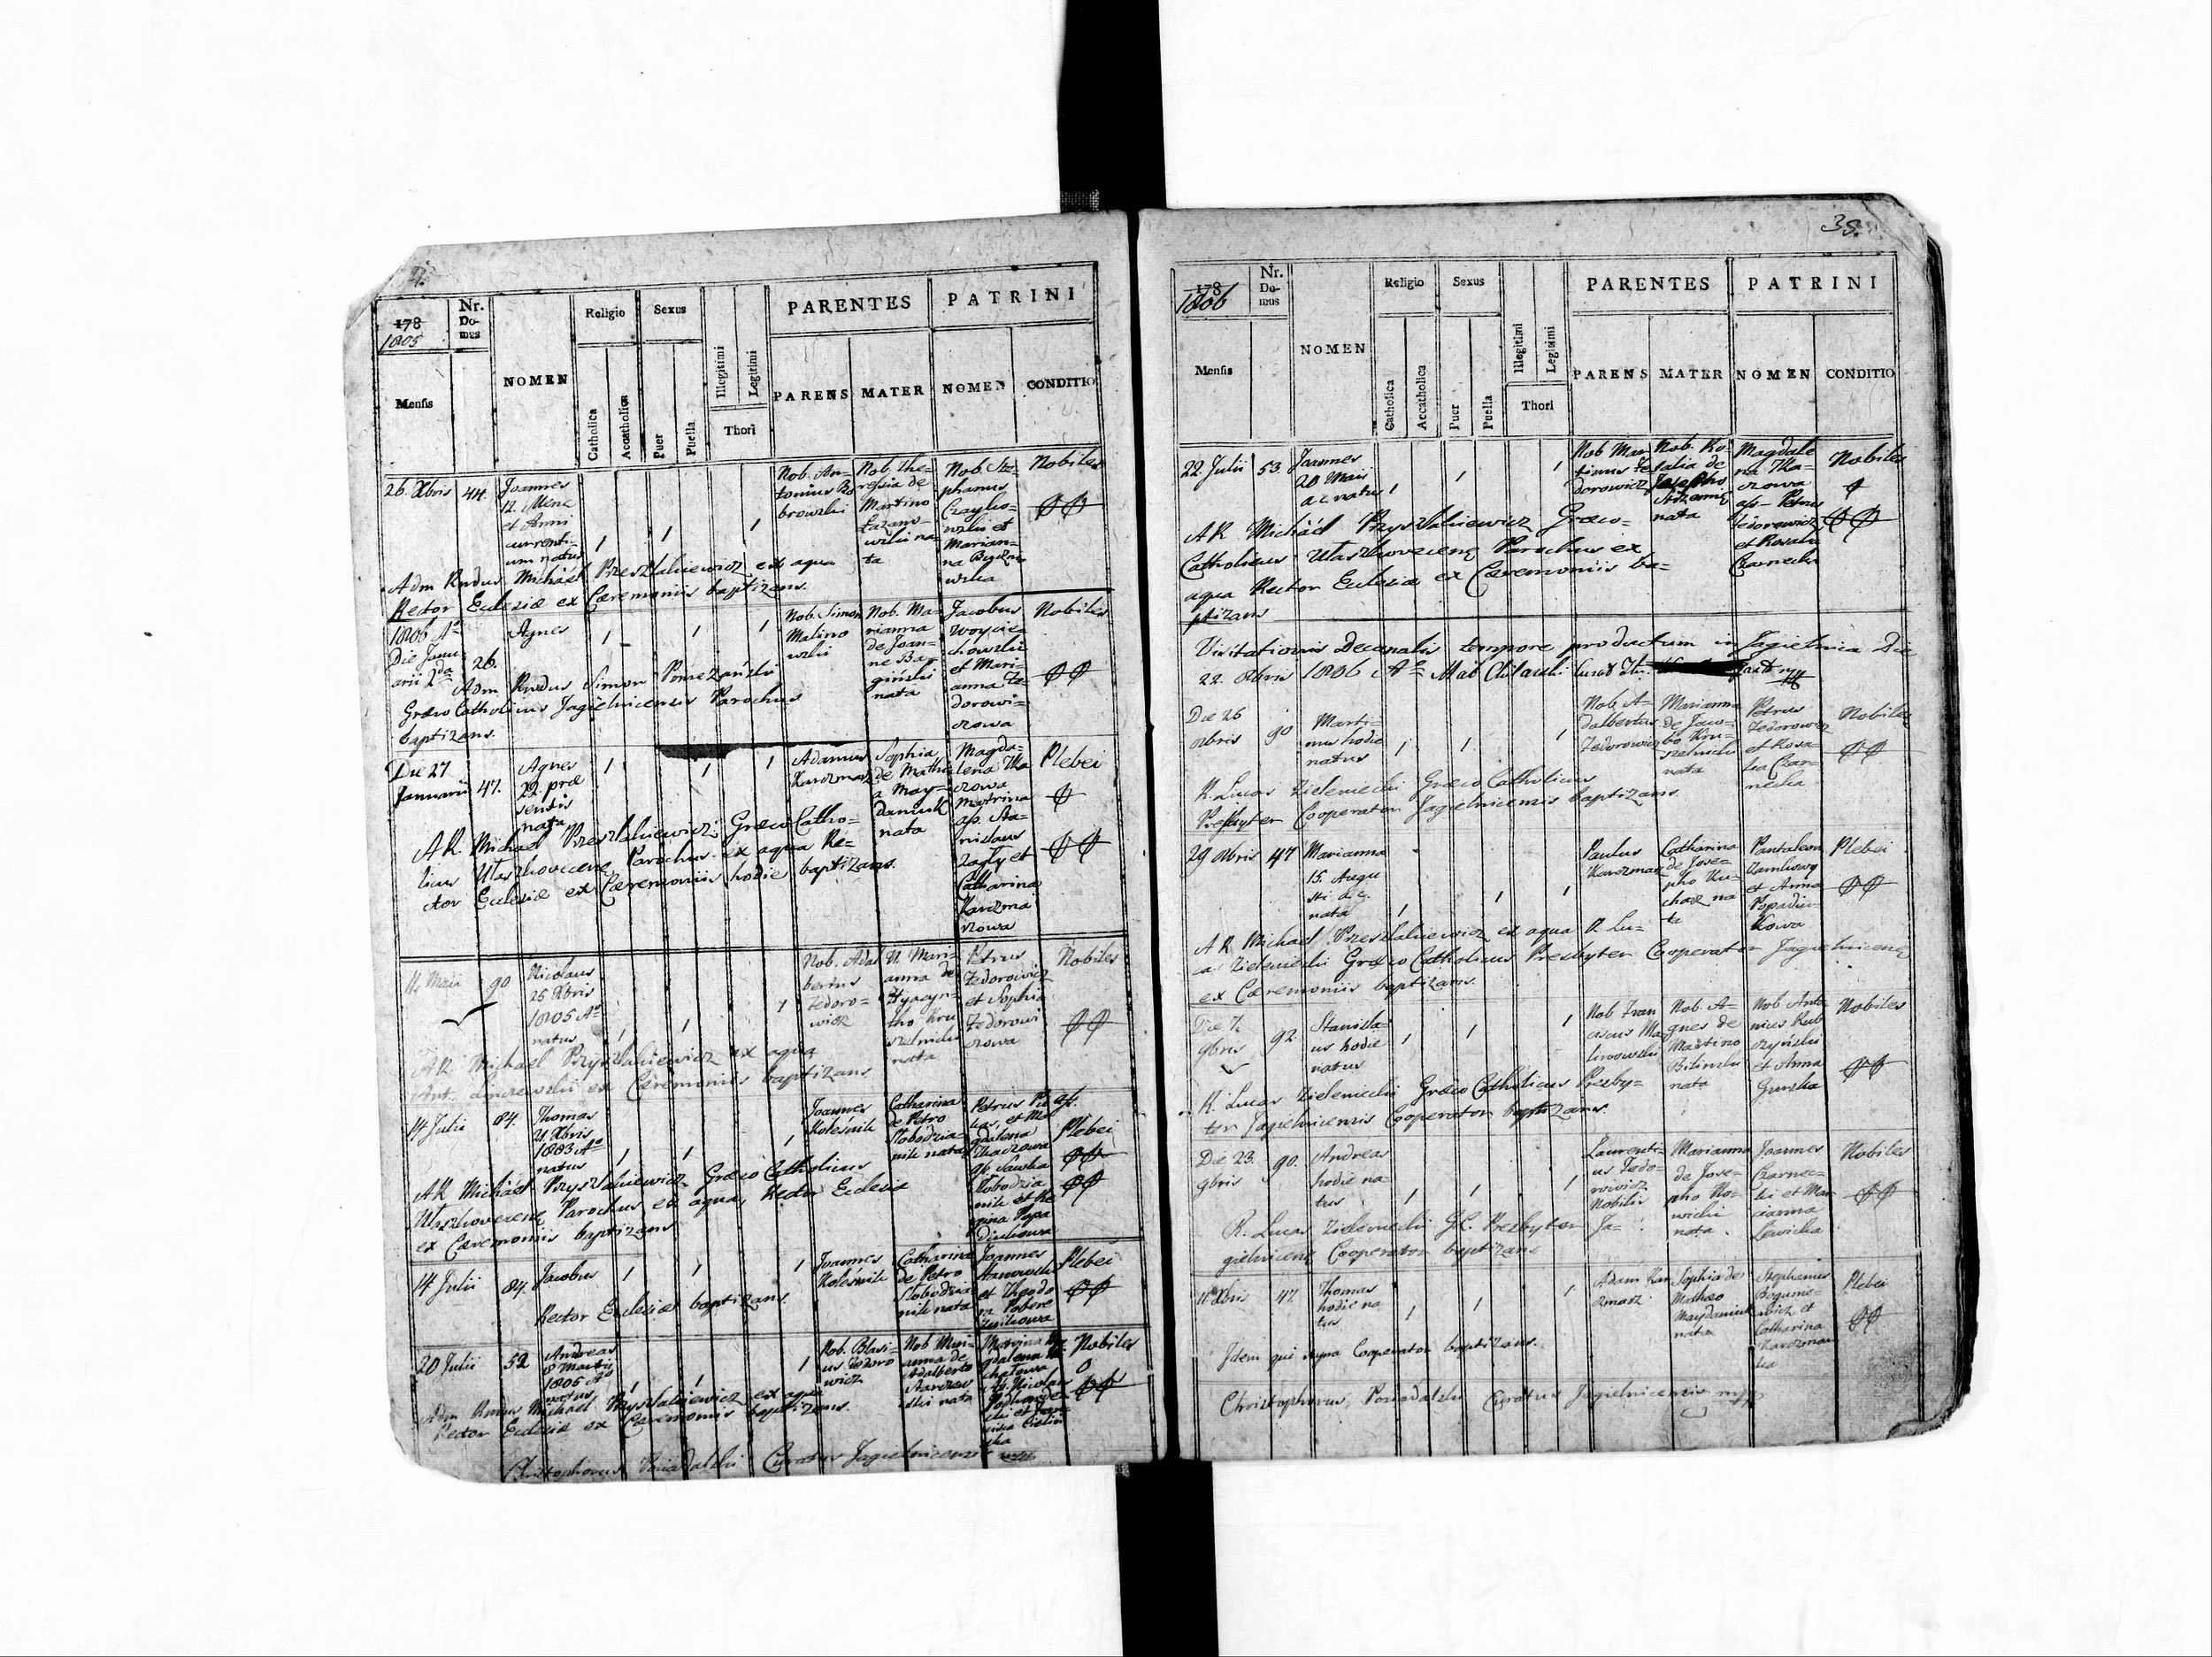 178
1805
Nr. Domus
NOMEN
Religio
Sexus
PARENTES
PATRINI
Mensis
Catholica
Accatholica
Puer
Puella
Illegitimi
Legitimi
Thori
PARENS
MATER
NOMEN
CONDITIO
26. Xbris
44.
Joannes
12. Mens
et Anni
currenti-
um natus
1
1
1
Nob. An-
tonius Bo
browski
Nob. The-
ressia de
Martino
na
ta
Nob. Ste-
phanus
et
Marian-
na
Nobiles
Adm Rndus Michäel Przeszlakiewicz ex aqua
Rector Eclesiæ ex Cæremoniis baptizans.
1806 Ao
Die Janu-
arii 2da
26.
Agnes
1
1
1
Nob. Simon
Malino
wski
Nob. Ma-
rianna
de Joan-
ne Ba-
ginski
nata
Jacobus
Woycie-
chowski
et Mari-
anna Fe-
dorowi-
czowa
Nobiles
Adm Rndus Simon
Græco Catholicus Jagielnicensis Parochus
baptizans.
Die 27.
Januarii
47.
Agnes
22. præ
sentis
nata
1
1
1
Adamus
Karczmarz
Sophia
de Mathe
o May-
daniuk
nata
Magda-
lena Tka
czowa
Matrina
ass. Sta-
nislaus
Zagly et
Catharina
Karczma
rzowa
Plebei
A R. Michael Przeszlakiewicz Græco Catho-
licus Ulaszkovcens Parochus ex aqua Re-
ctor Eclesiæ ex Cæremoniis hodie baptizans.
11. Maii
90
Nicolaus
25 Xbris
1805 Ao
natus
1
1
1
Nob. Adal
bertus
Fedoro-
wicz
N. Mari-
anna de
Hyacyn-
tho Kru
szelnicki
nata
Petrus
Fedorowicz
et Sophia
Fedorowi
czowa
Nobiles
A R Michael Przyszlakiewicz ex aqua
ex Cæremoniis baptizans
14 Julii
84.
Thomas
21 Xbris
1803 Ao
natus
1
1
1
Joannes
Kolesnik
Catharina
de Petro
Slobodzia-
nik nata
et Ma
gdalena
Tkaczowa
Slobodzia
nik et Re
gina Popa
diukowa
Plebei
A R Michael Przyszlakiewicz Græco Catholicus
Ulaszkovcens Parochus ex aqua, Rector Eclesiæ
ex Cæremoniis baptizans
14 Julii
84.
Jacobus
1
1
1
Joannes
Kolesnik
Catharina
de Petro
Slobodzia
nik nata
Joannes
et Theodo
ra
Plebei
Rector Eclesiæ baptizans.
20 Julii
52.
Andreas
8 Martii
1805 Ao
natus
1
1
1
Nob. Blasi-
us Fedoro
wicz
Nob Mari-
anna de
Adalberto
nata
Nobiles
Adm Rndus Michael Przyszlakiewicz ex aqua
Rector Eclesiæ ex Cæremoniis baptizans.
Christophorus Poniadalski Curatus Jagielnicensis mpp
35.
178
1806
Nr. Domus
NOMEN
Religio
Sexus
PARENTES
PATRINI
Mensis
Catholica
Accatholica
Puer
Puella
Illegitimi
Legitimi
Thori
PARENS
MATER
NOMEN
CONDITIO
22. Julii
53.
Joannes
20 Maii
a. c. natus
1
1
1
Nob Mar
tinus Fe
dorowicz
Nob. Ro-
salia de
Josepho
nata
Magdale
na Tka-
czowa
ass- Petrus
Fedorowicz
et Rosalia
Czarnecka
Nobiles
A R Michäel Przyszlakiewicz Græco-
Catholicus Ulaszkovcens Parochus ex
aqua Rector Eclesiæ ex Cæremoniis ba-
ptizans
Visitationis Decanalis tempore productum in Jagielnica Die
22. 8bris 1806 Ao
Die 26
8bris
90
Marti-
nus hodie
natus
1
1
1
Nob. A-
dalbertus
Fedorowicz
Marianna
de Jaco-
bo Kru-
szelnicki
nata
Petrus
Fedorowicz
et Rosa-
lia Czar-
necka
Nobiles
R. Lucas Zieleniecki Græco Catholicus
Presbyter Cooperator Jagielnicensis baptizans.
29 8bris
47
Marianna
15. Augu
sti a. c.
nata
1
1
1
Paulus
Karczmarz
Catharina
de Jose-
pho Ku-
charz na
ta
Pantaleon
et Anna
Popadiu-
kowa
Plebei
A R. Michael Przeszlakiewicz ex aqua R. Lu-
cas Zieleniecki Græco Catholicus Presbyter Cooperator Jagielnicens
ex Cæremoniis baptizans.
Die 7.
9bris
92.
Stanisla-
us hodie
natus
1
1
1
Nob Fran
ciscus Ma
linowski
Nob. A-
gnes de
Martino
Bilinski
nata
Nob Anto
nius Rub
czynski
et Anna
Gurska
Nobiles
R. Lucas Zieleniecki Græco Catholicus Presby-
ter Jagielnicensis Cooperator baptizans.
Die 23.
9bris
90.
Andreas
hodie na-
tus
1
1
1
Laurenti-
us Fedo-
rowicz
Nobilis
Marianna
de Jose-
pho No-
wicki
nata
Joannes
Czarnec-
ki et Mar
cianna
Lewicka
Nobiles
R. Lucas Zieleniecki G.C. Presbyter Ja-
gielnicens Cooperator baptizans
11 Xbris
47.
Thomas
hodie na
tus
1
1
1
Adam Kar
czmarz
Sophia de
Matheo
Maydaniuk
nata
Stephanus
Bogume-
wicz et
Catharina
Karczmar
ka
Plebei
Idem qui supra Cooperator baptizans.
Christophorus Poniadalski Curatus Jagielnicensis mpp